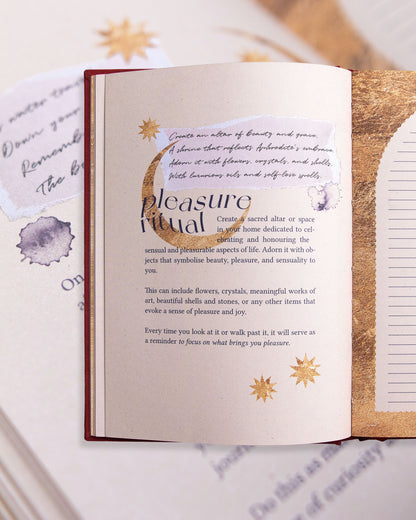 Create an altar of beauty and grace,
A shrine that reflects Aphrodite's embrace.
Adorn it with flowers, crystals, and shells,
With luxurious oils and self-love spells.
pleasure
ritual
Create a sacred altar or space
in your home dedicated to cel-
ebrating and honouring the
sensual and pleasurable aspects of life. Adorn it with ob-
jects that symbolise beauty, pleasure, and sensuality to
you.
This can include flowers, crystals, meaningful works of
art, beautiful shells and stones, or any other items that
evoke a sense of pleasure and joy.
Every time you look at it or walk past it, it will serve as
a reminder to focus on what brings you pleasure.
water
Down your
Remember
The
On
journ
Do this as m
of curiosity